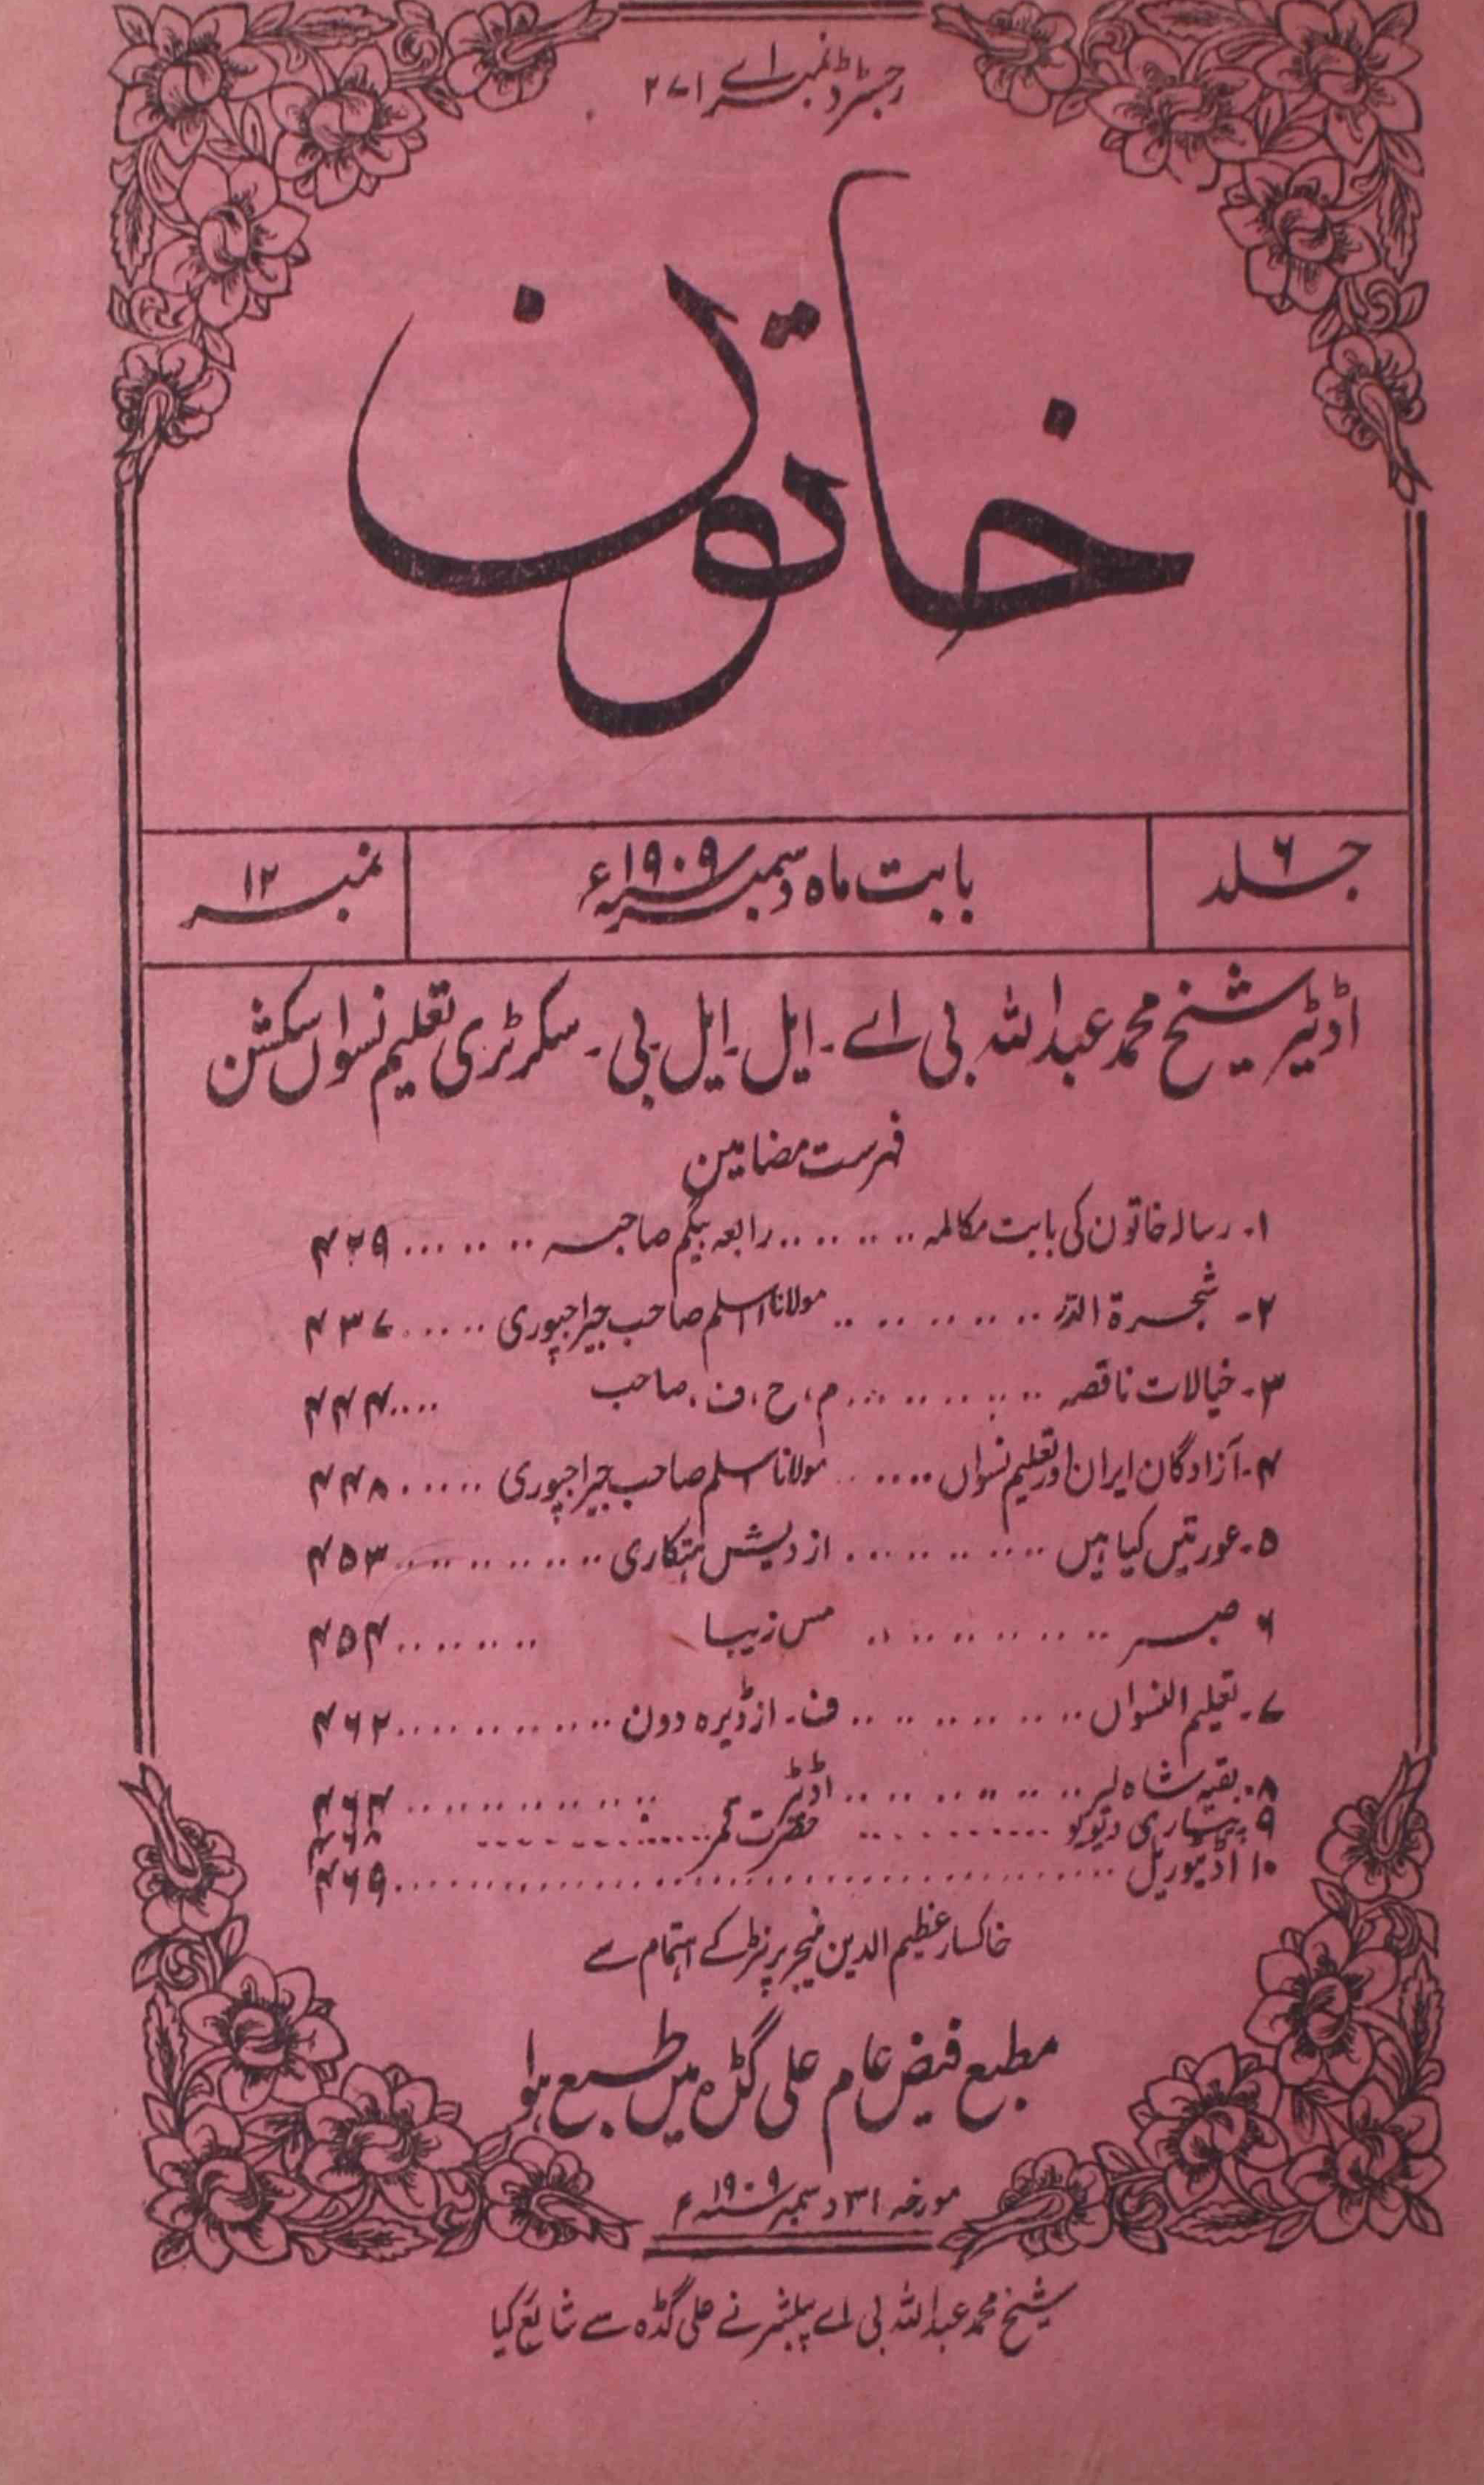 رجسٹرڈ نمبر اے ۲۷۱
خاتون
جلد ۶
بابت ماہ دسمبر سنہ ۱۹۰۹ء
نمبر ۱۲
اڈیٹر شیخ محمد عبداللہ بی اے۔ ایل۔ ایل۔ بی۔ سکرٹری تعلیم نسواں سکشن
فہرست مضامین
۱۔ رسالہ خاتون کی بابت مکالمہ ........ رابعہ بیگم صاحبہ ........ ۴۲۵
۲۔ شجرۃ الدر .......... مولانا اسلم صاحب جیراجپوری ...... ۴۳۷
۳۔ خیالات ناقصہ .......... م، ح، ف، صاحب .... ۴۴۴
۴۔ آزادگان ایران اور تعلیم نسواں ...... مولانا اسلم صاحب جیراجپوری ...... ۴۴۸
۵۔ عورتیں کیا ہیں .......... از دیش ہتکاری .......... ۴۵۳
۶ صبر .......... مس زیبا ........ ۴۵۴
۷۔ تعلیم النسواں .......... ف۔ از ڈیرہ دون .......... ۴۶۲
۸۔ بقیہ شاہ لیر .......... اڈیٹر ..........
۹ .......... حضرت قمر ..........
۱۰ اڈیٹوریل .......... ۴۶۹
خاکسار عظیم الدین منیجر پرنٹر کے اہتمام سے
مطبع فیض عام علی گڈہ میں طبع ہوا
مورخہ ۳۱ دسمبر سنہ ۱۹۰۹ء
شیخ محمد عبداللہ بی اے پبلشر نے علی گڈہ سے شائع کیا